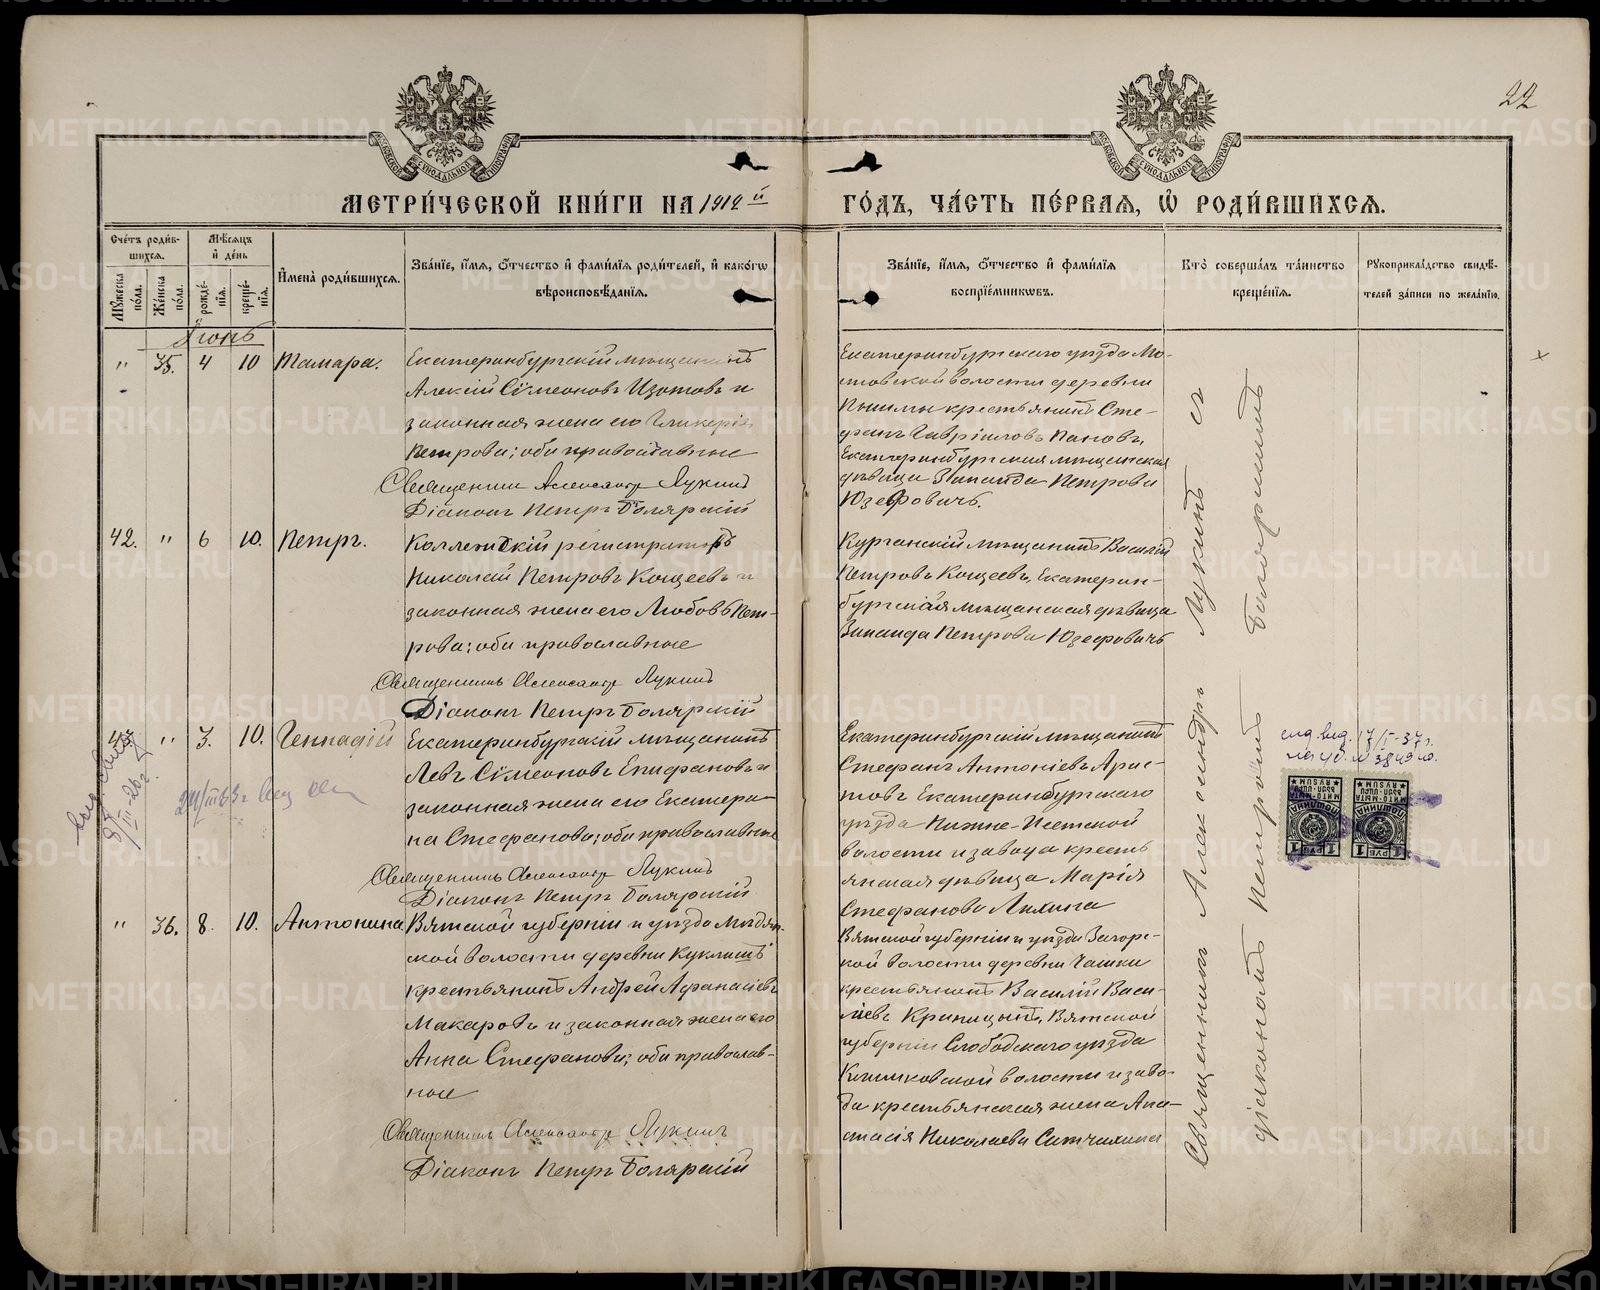 22
МЕТРИ́ЧЕСКОЙ КНИ́ГИ НА 1912 й
ГО́ДЪ, ЧА́СТЬ ПЕ́РВАЯ, Ѽ РОДИ́ВШИХСЯ.
Сче́тъ роди́в-
шихся.
Му́жеска по́ла.
Же́нска по́ла.
Мѣ́сяцъ и де́нь
рожде́нія.
креще́нія.
Имена̀ роди́вшихся.
Зва́ніе, и́мя, о́тчество и фами́лія роди́телей, и како́гѡ
вѣроисповѣ́данія.
Зва́ніе, и́мя, о́тчество и фами́лія
воспріе́мниковъ.
Кто̀ соверша́лъ та́инство
креще́нія.
Рукоприкла́дство свидѣ́-
телей за́писи по жела́нію.
Іюнь
" 35. 4 10 Тамара.
Екатеринбургскій мѣщанинъ
Алексій Сѵмеоновъ Изотовъ и
законная жена его Гликерія
Петрова; оба православные
Священникъ Александръ Лукинъ
Діаконъ Петръ Болярскій
Екатеринбургскаго уѣзда Мо-
стовской волости деревни
Пышмы крестьянинъ Сте-
фанъ Гавріиловъ Пановъ,
Екатеринбургская мѣщанская
дѣвица Зинаида Петрова
Юзефовичъ.
42. " 6 10. Петръ.
Коллежскій регистраторъ
Николай Петровъ Кощеевъ и
законная жена его Любовь Пет-
рова; оба православные
Священникъ Александръ Лукинъ
Діаконъ Петръ Болярскій
Курганскій мѣщанинъ Василій
Петровъ Кощеевъ, Екатерин-
бургская мѣщанская дѣвица
Зинаида Петрова Юзефовичъ
43. " 3. 10. Геннадій
Екатеринбургскій мѣщанинъ
Левъ Сѵмеоновъ Епифановъ и
законная жена его Екатери-
на Стефанова; оба православные
Священникъ Александръ Лукинъ
Діаконъ Петръ Болярскій
Екатеринбургскій мѣщанинъ
Стефанъ Антоніевъ Арис-
товъ Екатеринбургскаго
уѣзда Нижне-Исетской
волости и завода кресть
янская дѣвица Марія
Стефанова Лихина
" 36. 8. 10. Антонина
Вятской губерніи и уѣзда Мѣдян-
ской волости деревни
крестьянинъ Андрей Афанасіевъ
Макаровъ и законная жена его
Анна Стефанова; оба православ-
ные
Священникъ Александръ Лукинъ
Діаконъ Петръ Болярскій
Вятской губерніи и уѣзда Загор-
ской волости деревни Чашки
крестьянинъ Василій Васи-
ліевъ Криницынъ, Вятской
губерніи Слободскаго уѣзда
волости и заво-
да крестьянская жена Ана-
стасія Николаева
Священникъ Александръ Лукинъ съ
діакономъ Петромъ Болярскимъ
выд. 17/I-37г.